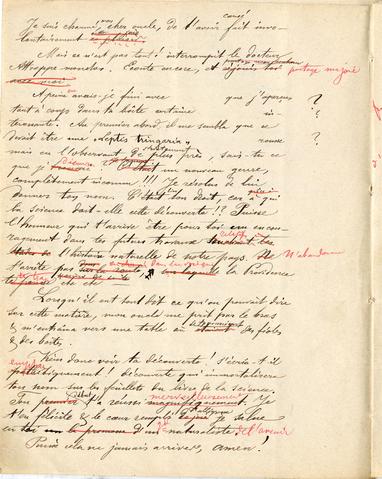 Je suis charmé, mon cher oncle, de l'avoir causé fait invo-
lontairement ce plaisir.
Mais ce n'est pas tout! interrompit le docteur
Attrappe mouches. Ecoute encore, et partage ma joie
A peine en avais-je fini avec que j'aperçus ?
tout à coup dans la boîte certaine in- ?
téressante! Au premier abord, il me semble que ce
devait être une "leptis tringaria" rousse ?
mais en l'observant de plus près, sais-tu ce
que je un nouveau genre,
complètement inconnu!!! Je résolus de lui
donner ton nom. C'était ton droit, car à qui
la Science doit-elle cette découverte!? Puisse
l'honneur qui t'arrive être pour toi un encou-
ragement dans tes futurs travaux
l'histoire naturelle de notre pays. N'abandonne
la Providence
Lorsqu'il eut tout dit ce qu'on pouvait dire
sur cette matière, mon oncle me prit par le bras
& m'entraîna vers une table où des fioles
& des boîtes.
Viens donc voir ta découverte! s'écria-t-il
emphatiquement! découverte qui immortalisera
ton nom sur les feuillets du livre de la science.
Ton début a réussi merveilleusement. Je
t'en félicite & le cœur rempli je salue
en toi naturaliste de l'avenir
Puisse cela ne jamais arriver, amen!